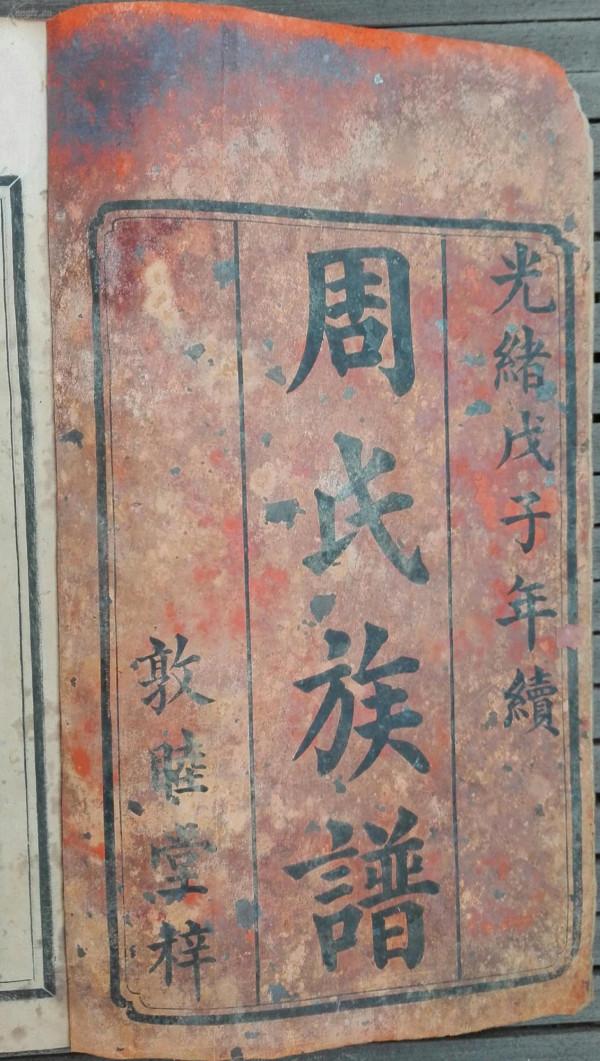 光緒戊子年續
周氏族譜
敦睦堂梓